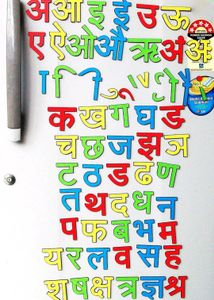 अ आ इ ई उ ऊ
ए ऐ ओ औ ऋ अं अः
ा ि ी
क ख ग घ ङ
च छ ज झ ञ
ट ठ ड ढ ण
त थ द ध न
प फ ब भ म
य र ल व स ह
श ष क्ष त्र ज्ञ श्र